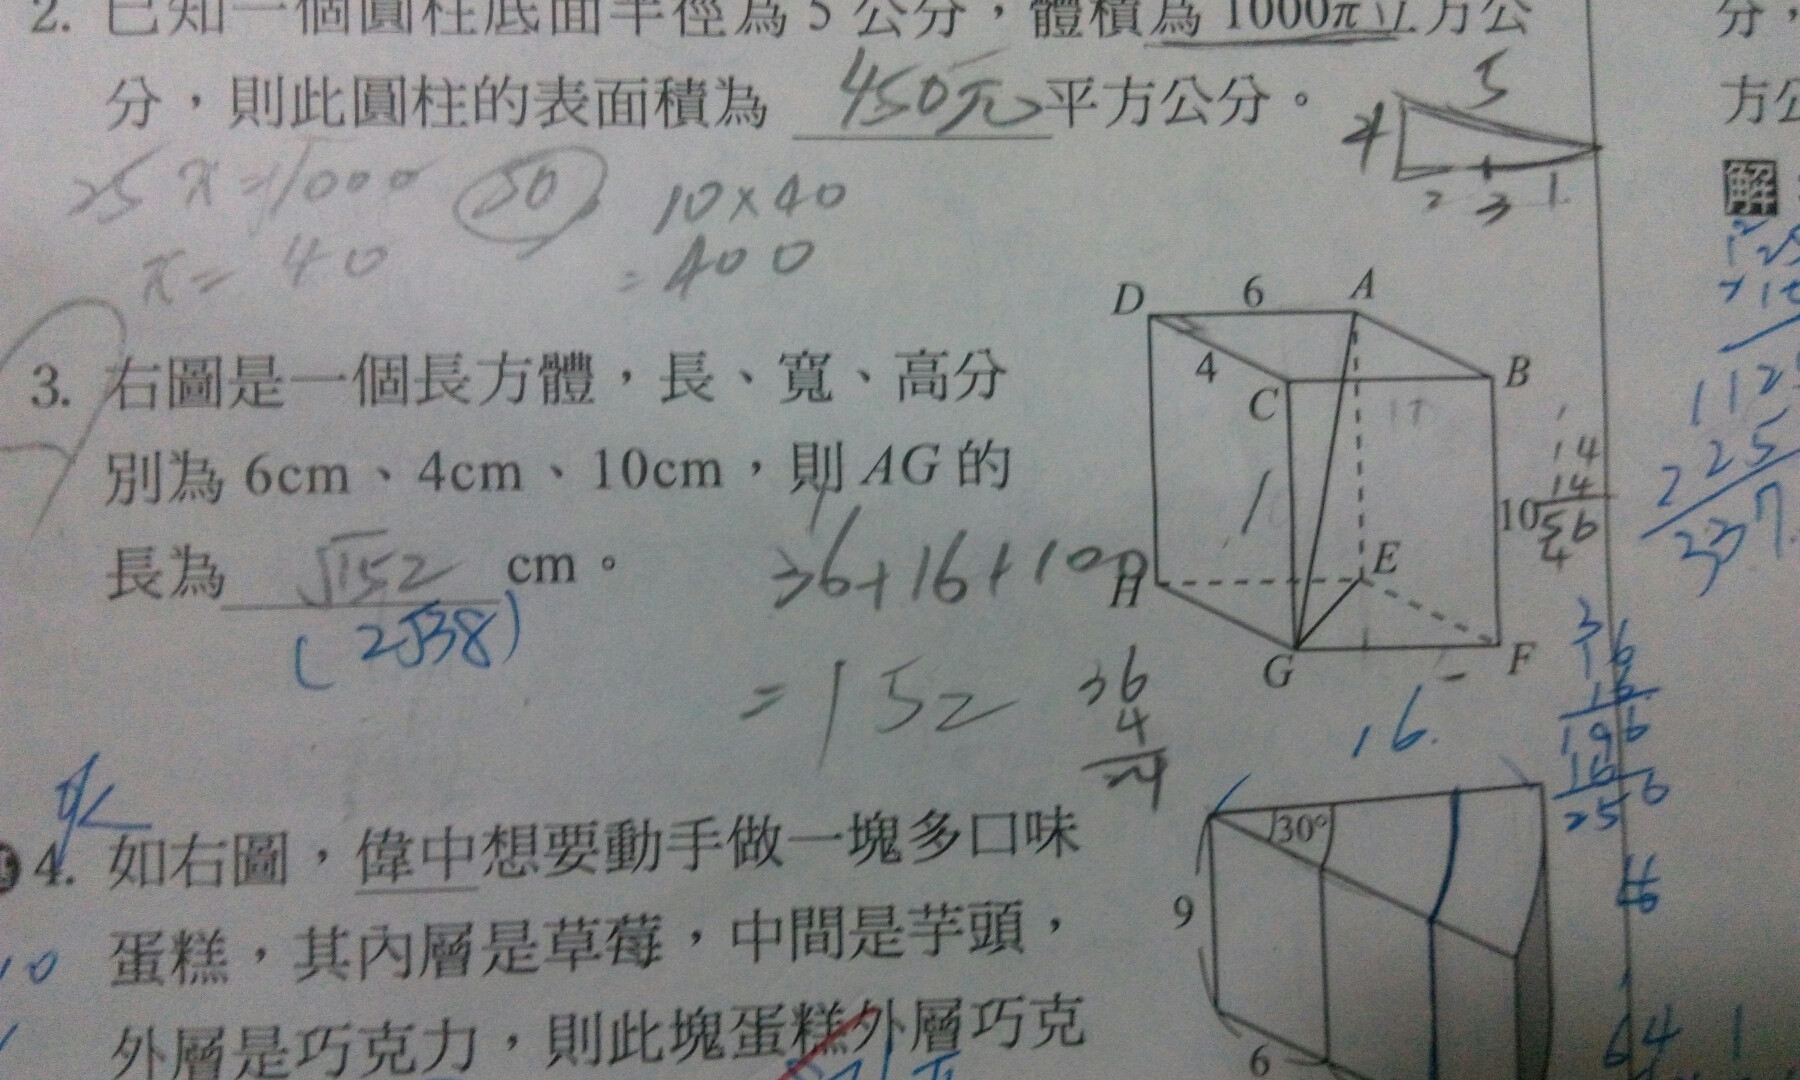 2. 已知一個圓柱底面半徑為 5 公分，體積為 1000π立方公
分，則此圓柱的表面積為 450元 平方公分。
25 x=1000
50
10×40
x= 40
=400
4
5
2 3 1
3. 右圖是一個長方體，長、寬、高分
別為 6cm、4cm、10cm，則 AG 的
長為 √152 cm。
(2√38)
36+16+100
=152
36
4
D 6 A
4
C
B
10
H
E
G
F
14
14
56
16.
36
16
16
196
16
256
4. 如右圖，偉中想要動手做一塊多口味
蛋糕，其內層是草莓，中間是芋頭，
外層是巧克力，則此塊蛋糕外層巧克
30°
9
6
10
64
分，
方公
解
225
337